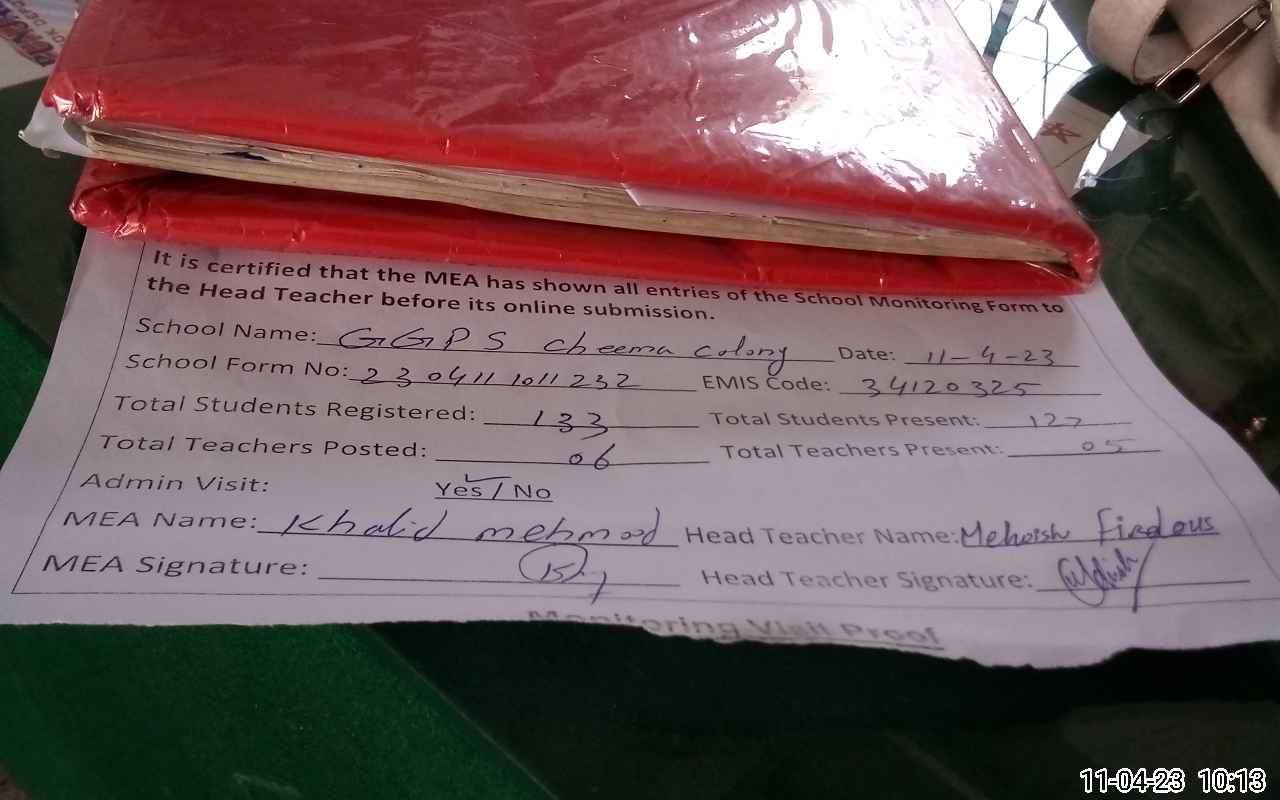 It is certified that the MEA has shown all entries of the School Monitoring Form to
the Head Teacher before its online submission.
School Name: GGPS cheema colony Date: 11-4-23
School Form No: 2304111011232 EMIS Code: 34120325
Total Students Registered: 133 Total Students Present: 127
Total Teachers Posted: 06 Total Teachers Present: 05
Admin Visit: Yes / No
MEA Name: Khalid mehmood Head Teacher Name: Mehwish Firdous
MEA Signature: Head Teacher Signature:
Monitoring Visit Proof
11-04-23 10:13